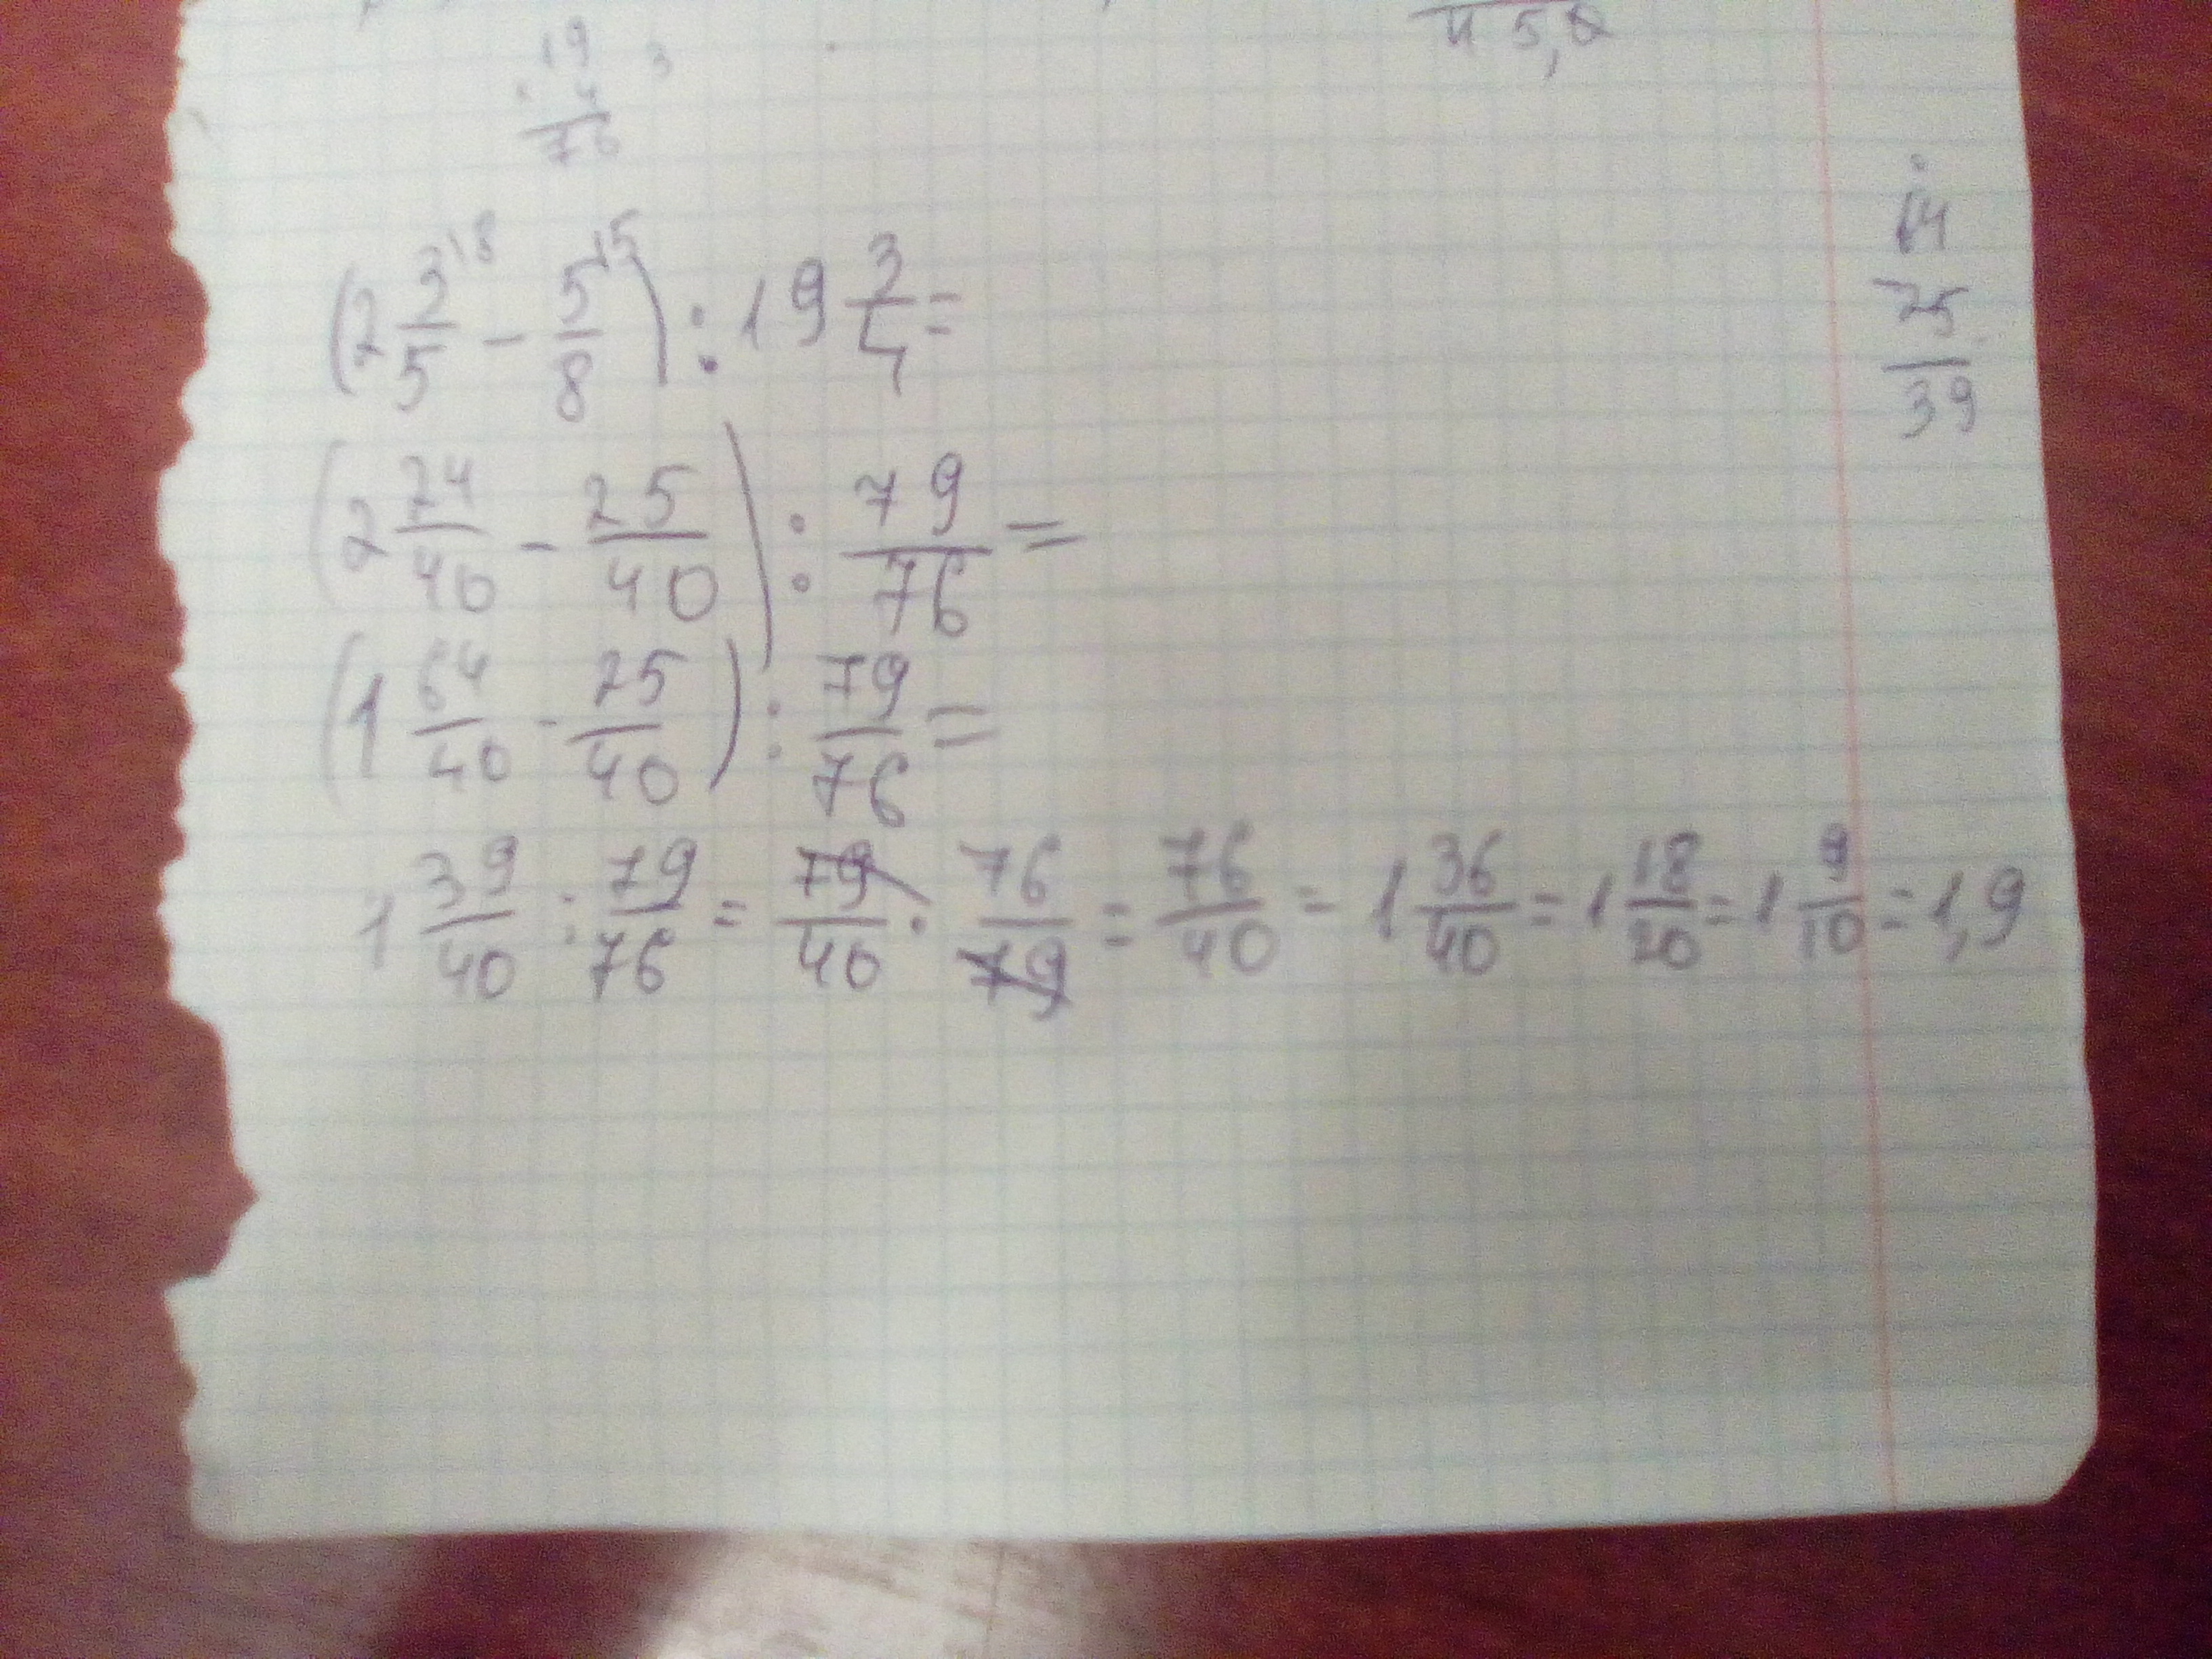 45,
19 3
4
76
64
- 25
39
(2 3/5 \8 - 5/8 \5) : 19 3/4 =
(2 24/40 - 25/40) : 79/76 =
(1 64/40 - 25/40) : 79/76 =
1 39/40 : 79/76 = 79/40 · 76/79 = 76/40 = 1 36/40 = 1 18/20 = 1 9/10 = 1,9